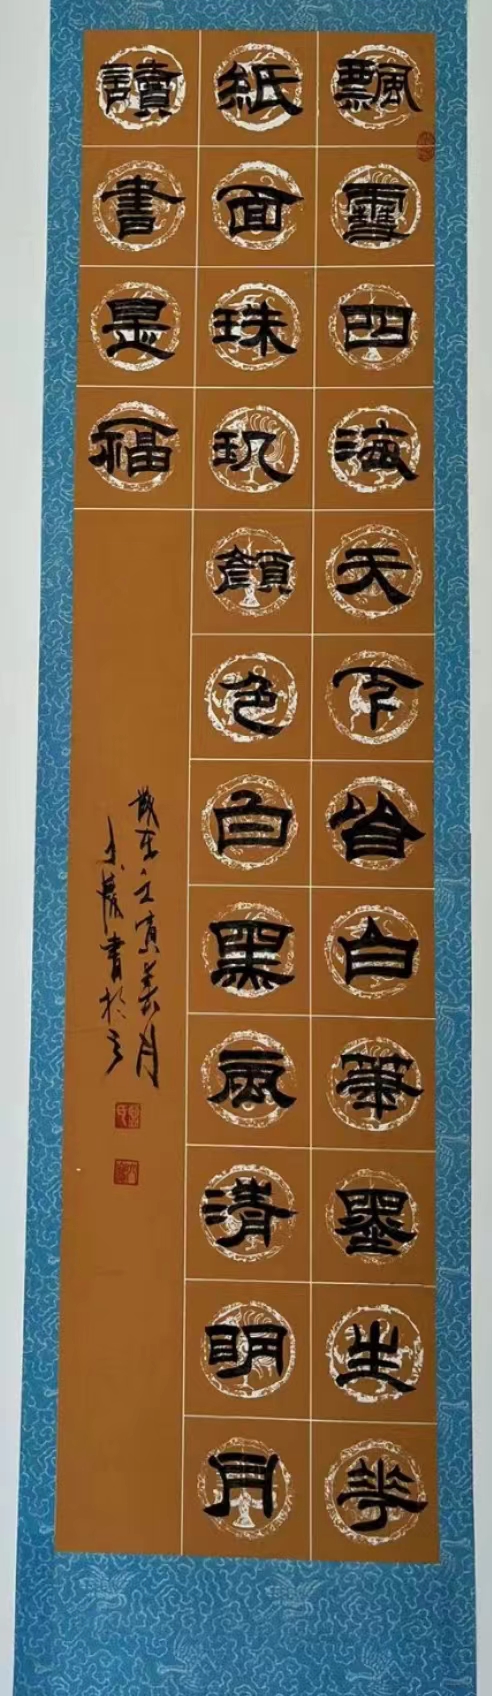 飄雪四海天下皆白筆墨生花
紙面珠玑顏色白黑两清明月
讀書是福
歲在壬寅月
書於